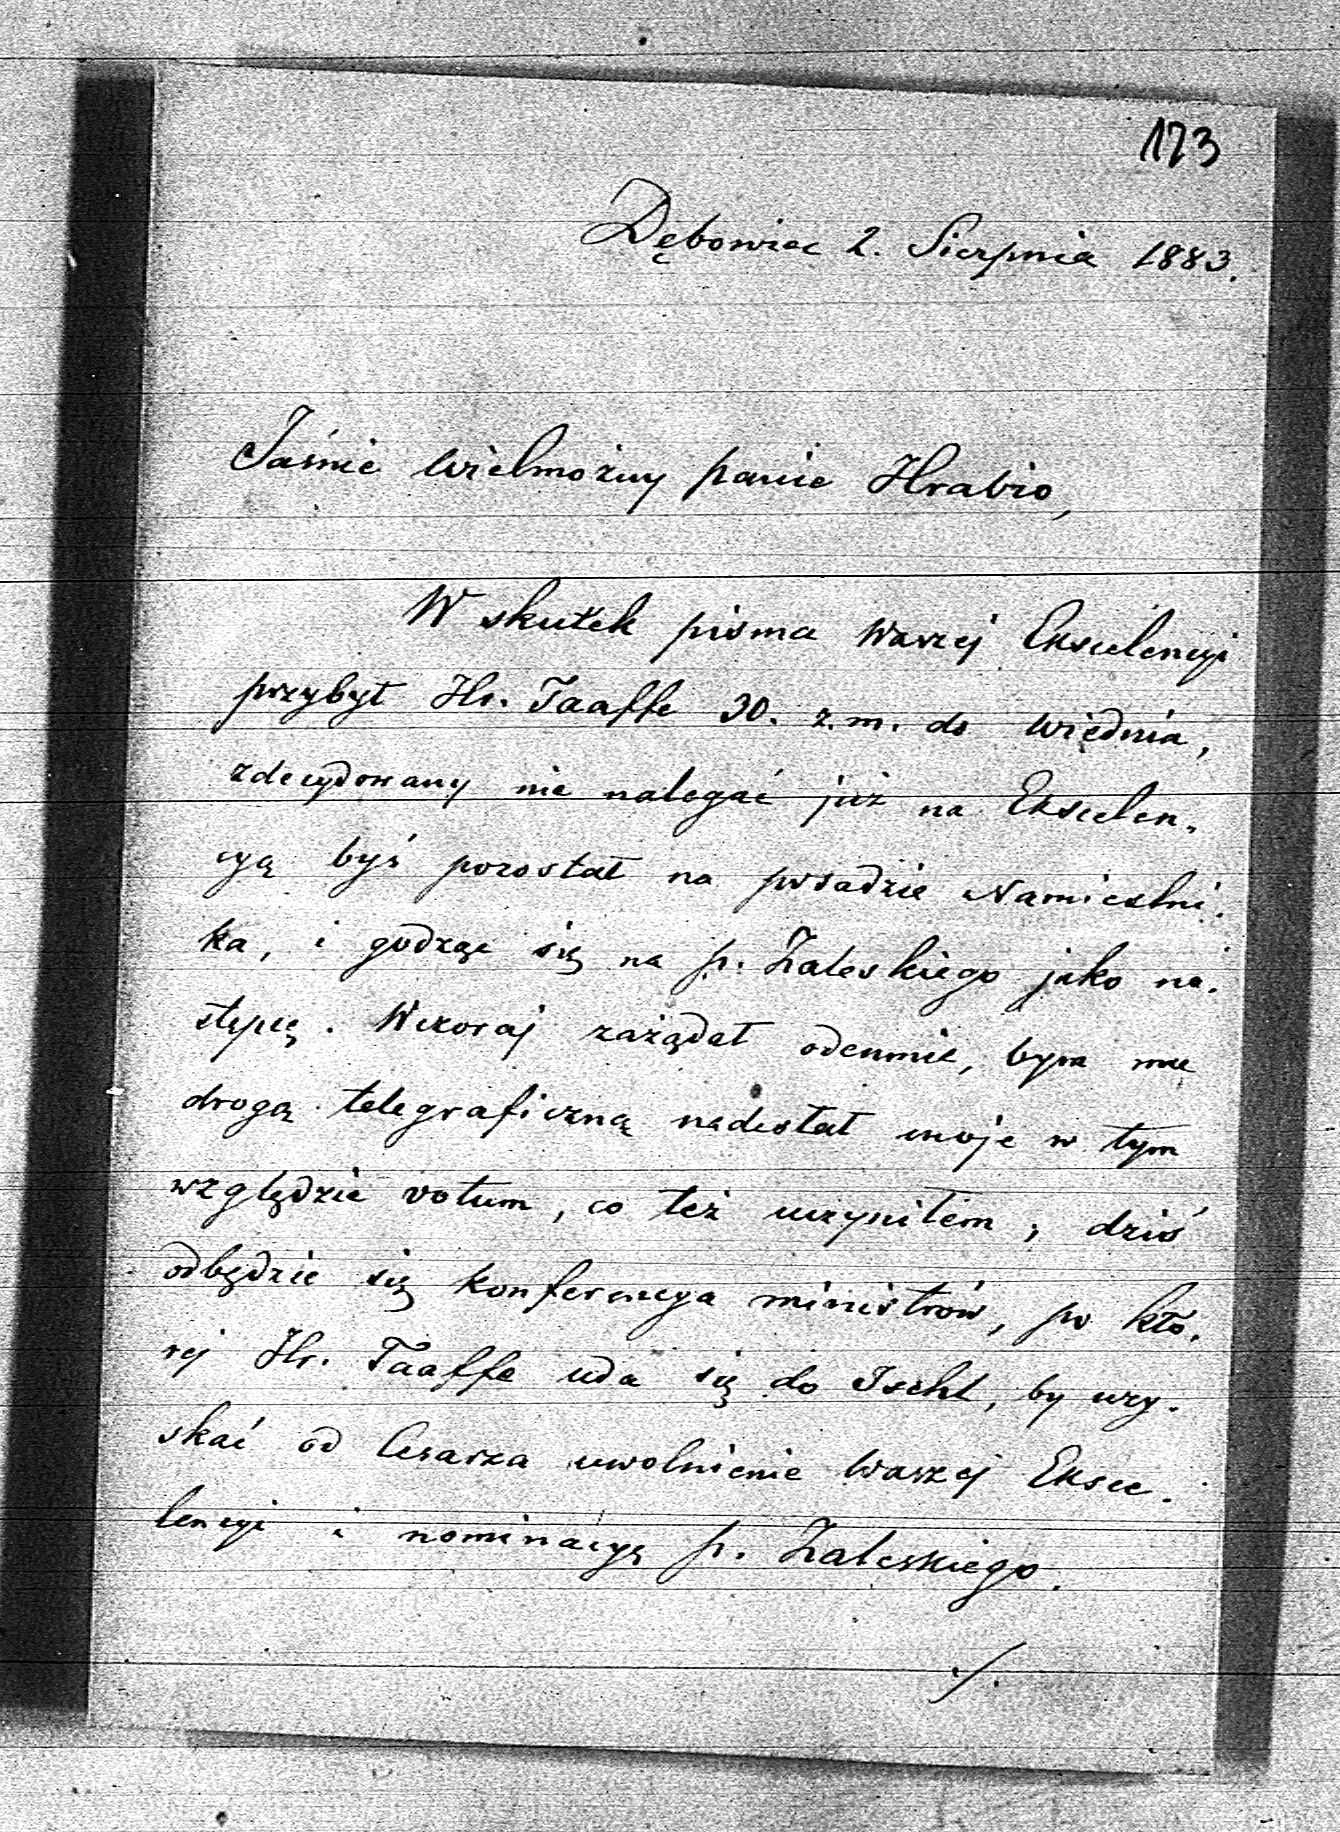 173
Dębowiec 2. Sierpnia 1883.
Jaśnie Wielmożny panie Hrabio,
W skutek pisma Waszej Ekscelencyi
przybył Hr. Taaffe 30. z. m. do Wiednia,
zdecydowany nie nalegać już na Ekscelen-
cyą byś pozostał na posadzie Namiestni-
ka, i godząc się na p. Zaleskiego jako na-
stępcę. Wczoraj zażądał odemnie, bym mu
drogą telegraficzną nadesłał moje w tym
względzie votum, co też uczyniłem, dziś
odbędzie się konferencya ministrów, po któ-
rej Hr. Taaffe uda się do Ischl, by uzy-
skać od Cesarza uwolnienie Waszej Eksce-
lencyi i nominacyę p. Zaleskiego.
./.